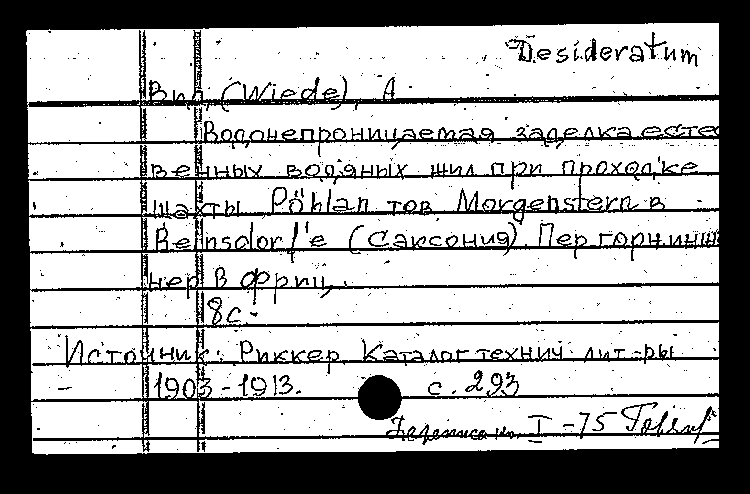 Desideratum
Вид, (Wiede), А
Водонепроницаемая заделка естес
венных водяных жил при проходке
шахты Pöhlan тов. Morgenstern в
Reinsdorf'e (Саксония). Пер. горн. инже
нер В Фриц,.
8с.-
Источник: Риккер. Каталог технич лит-ры
- 1903-1913. с. 293
I -75